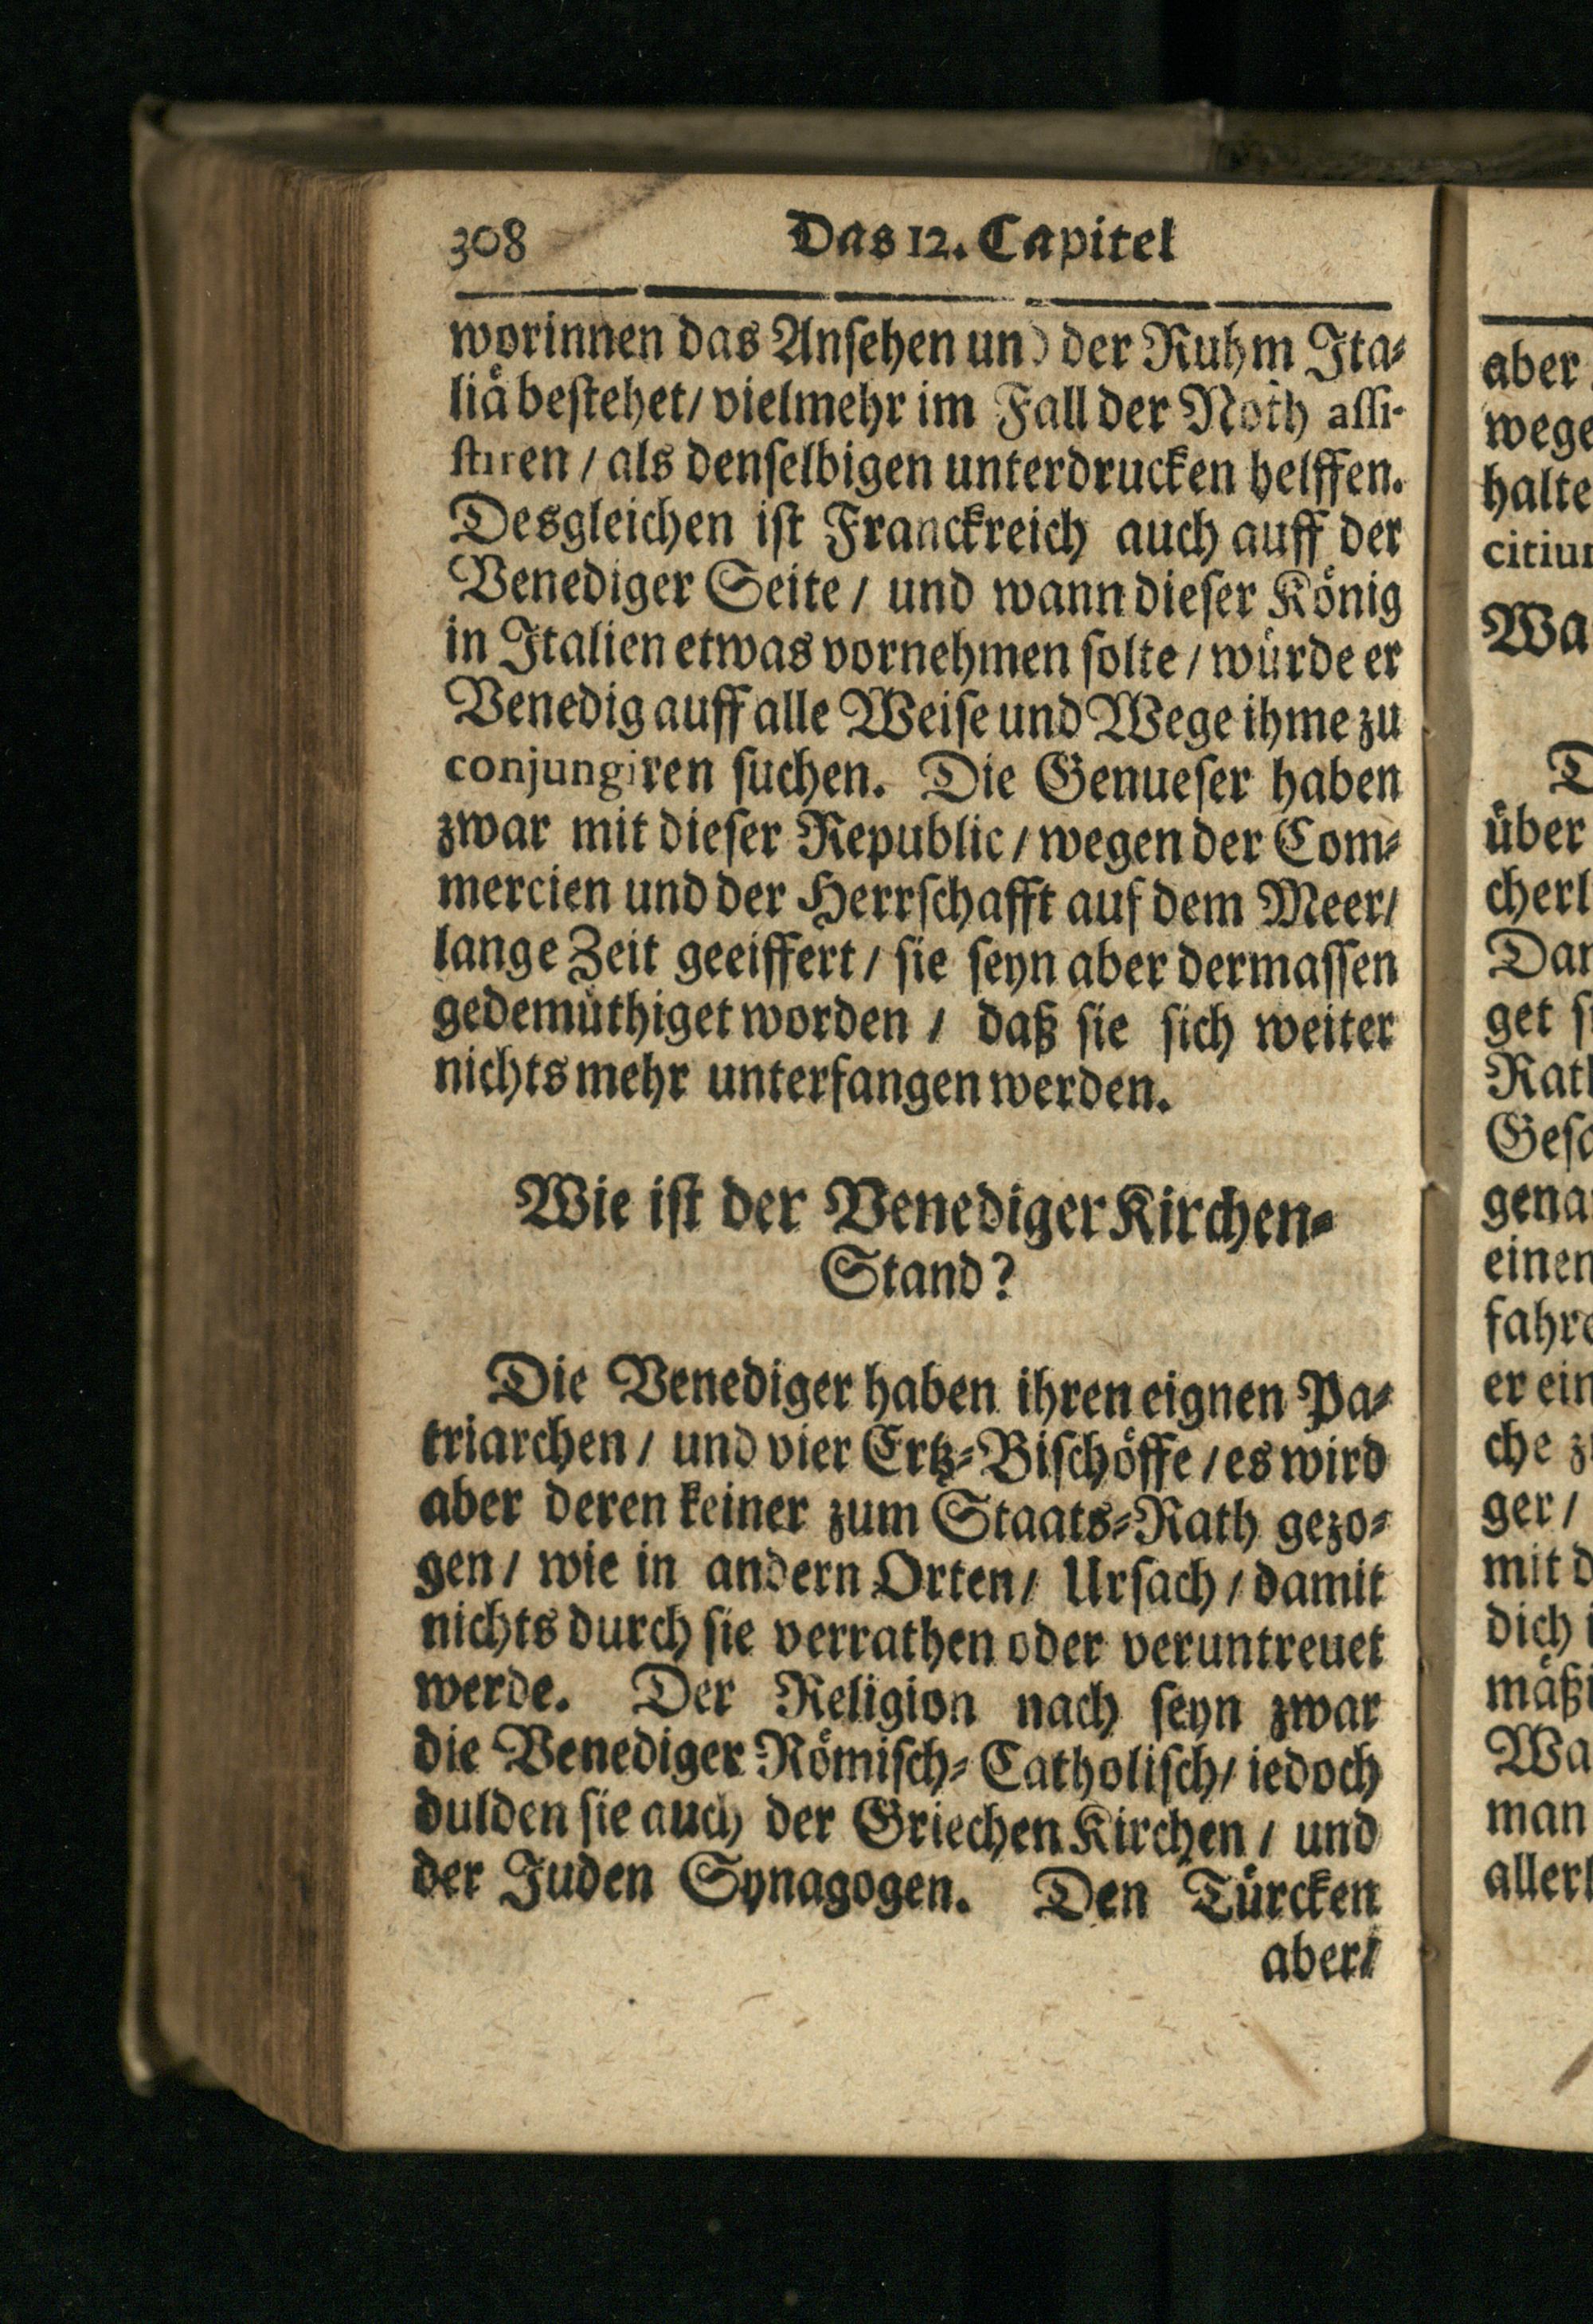 308 Das 12. Capitel
worinnen das Ansehen und der Ruhm Ita-
liä bestehet / vielmehr im Fall der Noth assi-
stiren / als denselbigen unterdrucken helffen.
Desgleichen ist Franckreich auch auff der
Venediger Seite / und wann dieser König
in Italien etwas vornehmen solte / würde er
Venedig auff alle Weise und Wege ihme zu
conjungiren suchen. Die Genueser haben
zwar mit dieser Republic / wegen der Com-
mercien und der Herrschafft auf dem Meer /
lange Zeit geeiffert / sie seyn aber dermassen
gedemüthiget worden / daß sie sich weiter
nichts mehr unterfangen werden.
Wie ist der Venediger Kirchen-
Stand?
Die Venediger haben ihren eignen Pa-
triarchen / und vier Ertz-Bischöffe / es wird
aber deren keiner zum Staats-Rath gezo-
gen / wie in andern Orten / Ursach / damit
nichts durch sie verrathen oder veruntreuet
werde. Der Religion nach seyn zwar
die Venediger Römisch-Catholisch / iedoch
dulden sie auch der Griechen Kirchen / und
der Juden Synagogen. Den Türcken
aber /
aber
wege
halte
citiu
Wa
D
über
cherl
Dar
get s
Rath
Gesc
gena
einen
fahre
er ein
che z
ger /
mit d
dich i
mäßi
Wa
man
allerl